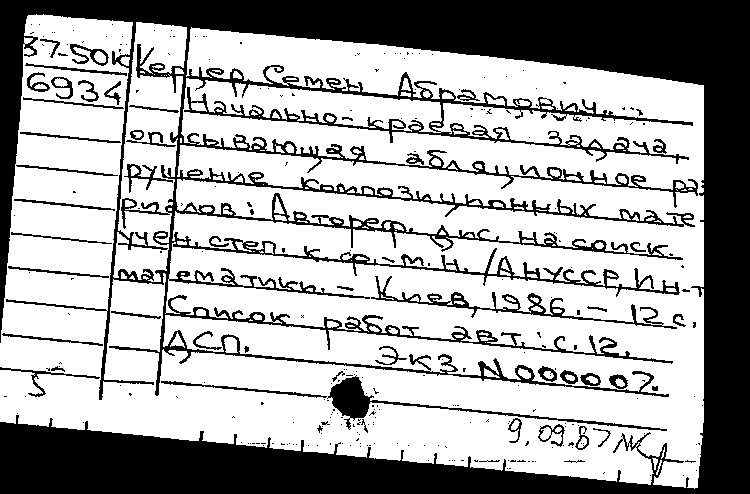 37-50к Керцер, Семен Абрамович.
6934 Начально-краевая задача,
описывающая абляционное раз
рушение композиционных мате-
риалов: Автореф. дис. на соиск.
учен. степ. к. ф.-м. н. /АН УССР, Ин-т
математики. – Киев, 1986. – 12 с.
Список работ авт.: с. 12.
ДСП. Экз. N000007.
5
9.09.87